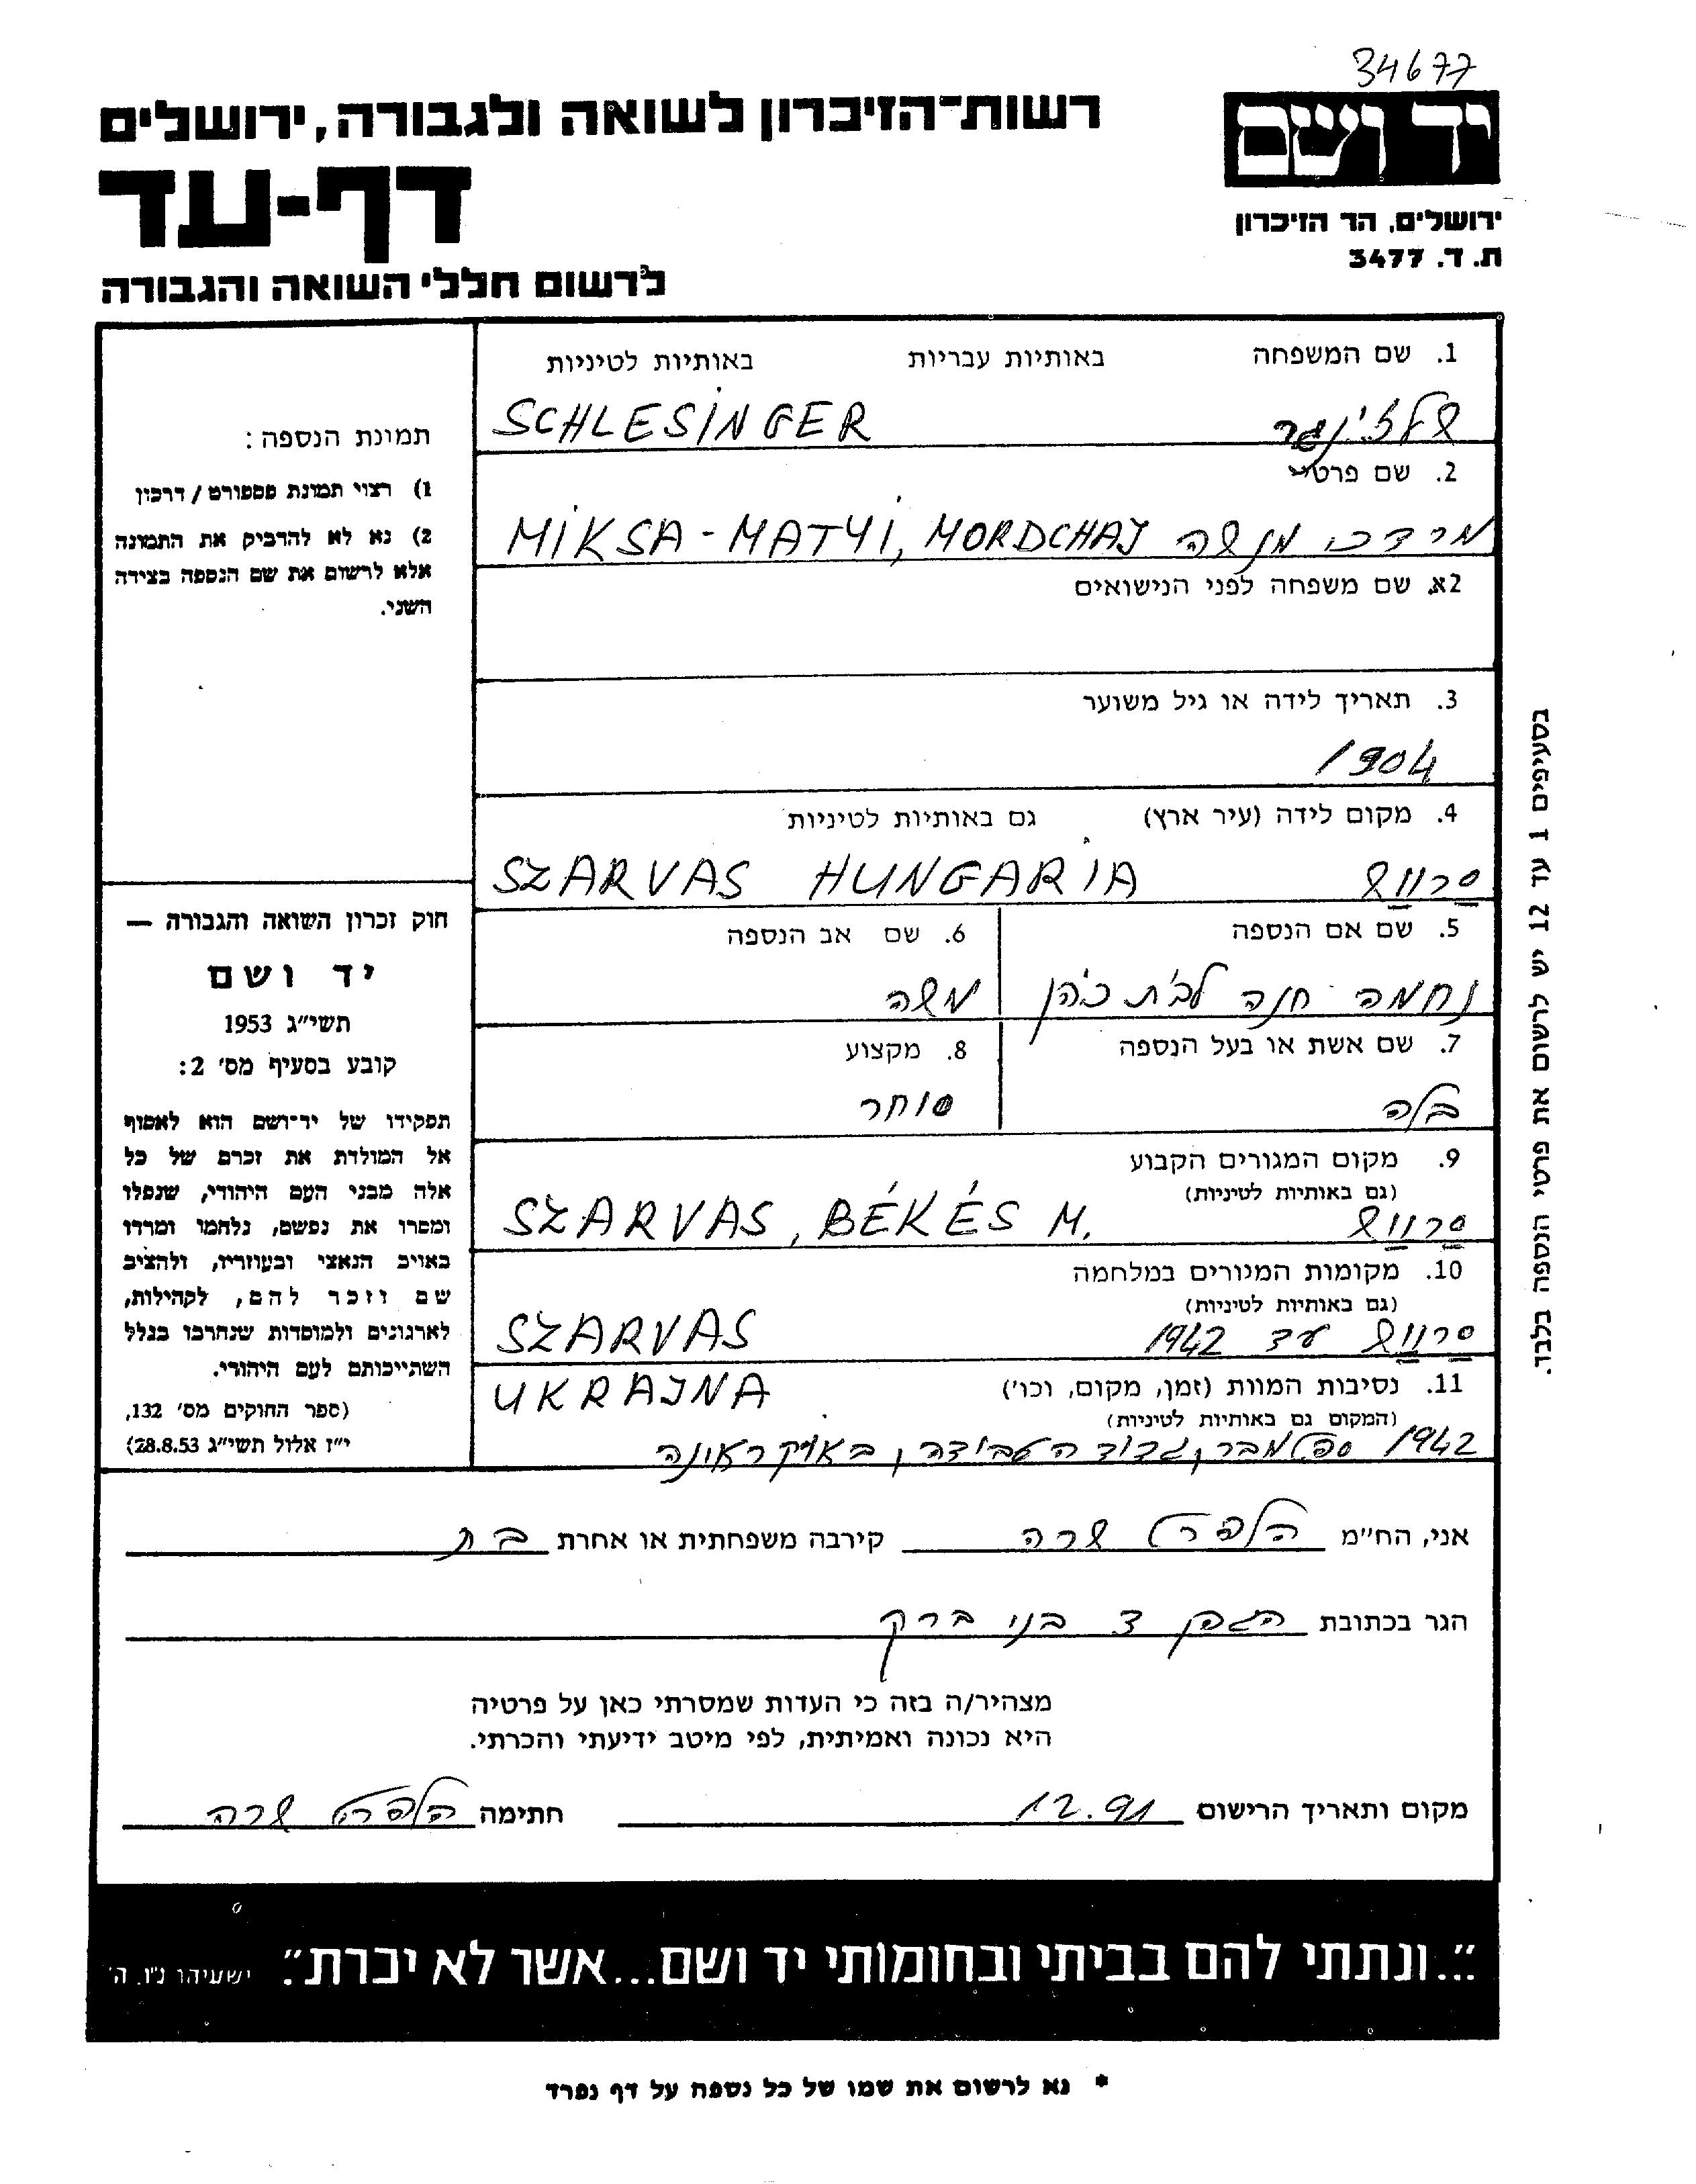 34677
רשות-הזיכרון לשואה ולגבורה, ירושלים
יד ושם
דף-עד
ירושלים, הר הזיכרון
ת. ד. 3477
לרשום חללי השואה והגבורה
1. שם המשפחה באותיות עבריות באותיות לטיניות
שלזינגר SCHLESINGER
2. שם פרטי
מרדכי מנשה MIKSA-MATYI, MORDCHAJ
2א. שם משפחה לפני הנישואים
3. תאריך לידה או גיל משוער
1904
4. מקום לידה (עיר ארץ) גם באותיות לטיניות
סרווש SZARVAS HUNGARIA
5. שם אם הנספה
נחמה חנה לבית כהן
6. שם אב הנספה
משה
7. שם אשת או בעל הנספה
בלה
8. מקצוע
סוחר
9. מקום המגורים הקבוע
(גם באותיות לטיניות)
סרווש SZARVAS, BÉKÉS M.
10. מקומות המגורים במלחמה
(גם באותיות לטיניות)
סרווש עד 1942 SZARVAS
11. נסיבות המוות (זמן, מקום, וכו')
UKRAJNA
(המקום גם באותיות לטיניות)
1942 ספטמבר, גדוד העבודה, באוקראינה
תמונת הנספה:
1) רצוי תמונת פספורט / דרכון
2) נא לא להדביק את התמונה
אלא לרשום את שם הנספה בצידה
השני.
חוק זכרון השואה והגבורה —
יד ושם
תשי"ג 1953
קובע בסעיף מס' 2:
תפקידו של יד-ושם הוא לאסוף
אל המולדת את זכרם של כל
אלה מבני העם היהודי, שנפלו
ומסרו את נפשם, נלחמו ומרדו
באויב הנאצי ובעוזריו, ולהציב
שם וזכר להם, לקהילות,
לארגונים ולמוסדות שנחרבו בגלל
השתייכותם לעם היהודי.
(ספר החוקים מס' 132,
י"ז אלול תשי"ג 28.8.53)
בסעיפים 1 עד 12 יש לרשום את פרטי הנספה בלבד.
אני, הח"מ הלפרט שרה קירבה משפחתית או אחרת בת
הגר בכתובת הגפן 3 בני ברק
מצהיר/ה בזה כי העדות שמסרתי כאן על פרטיה
היא נכונה ואמיתית, לפי מיטב ידיעתי והכרתי.
מקום ותאריך הרישום 12.91 חתימה הלפרט שרה
"...ונתתי להם בביתי ובחומותי יד ושם...אשר לא יכרת". ישעיהו נ"ו, ה'
* נא לרשום את שמו של כל נספה על דף נפרד